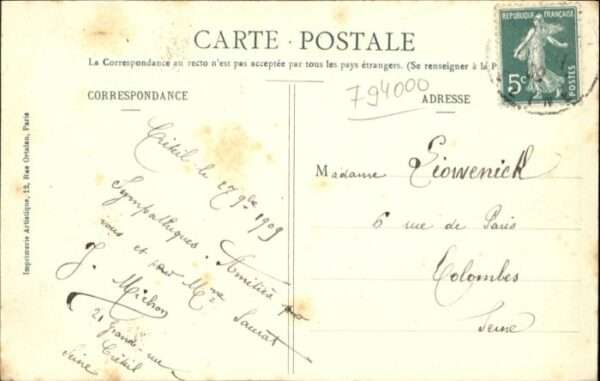 CARTE - POSTALE
La Correspondance au recto n'est pas acceptée par tous les pays étrangers. (Se renseigner à la P
RÉPUBLIQUE FRANÇAISE
5c
POSTES
794000
CORRESPONDANCE
ADRESSE
Imprimerie Artistique, 12, Rue Ortolan, Paris
Créteil le 27 9bre 1909
Sympathiques Amitiés
vous et pour Mme Saurat
J. Michon
21 grande rue
Créteil
Seine
Madame Liowenick
6 rue de Paris
Colombes
Seine